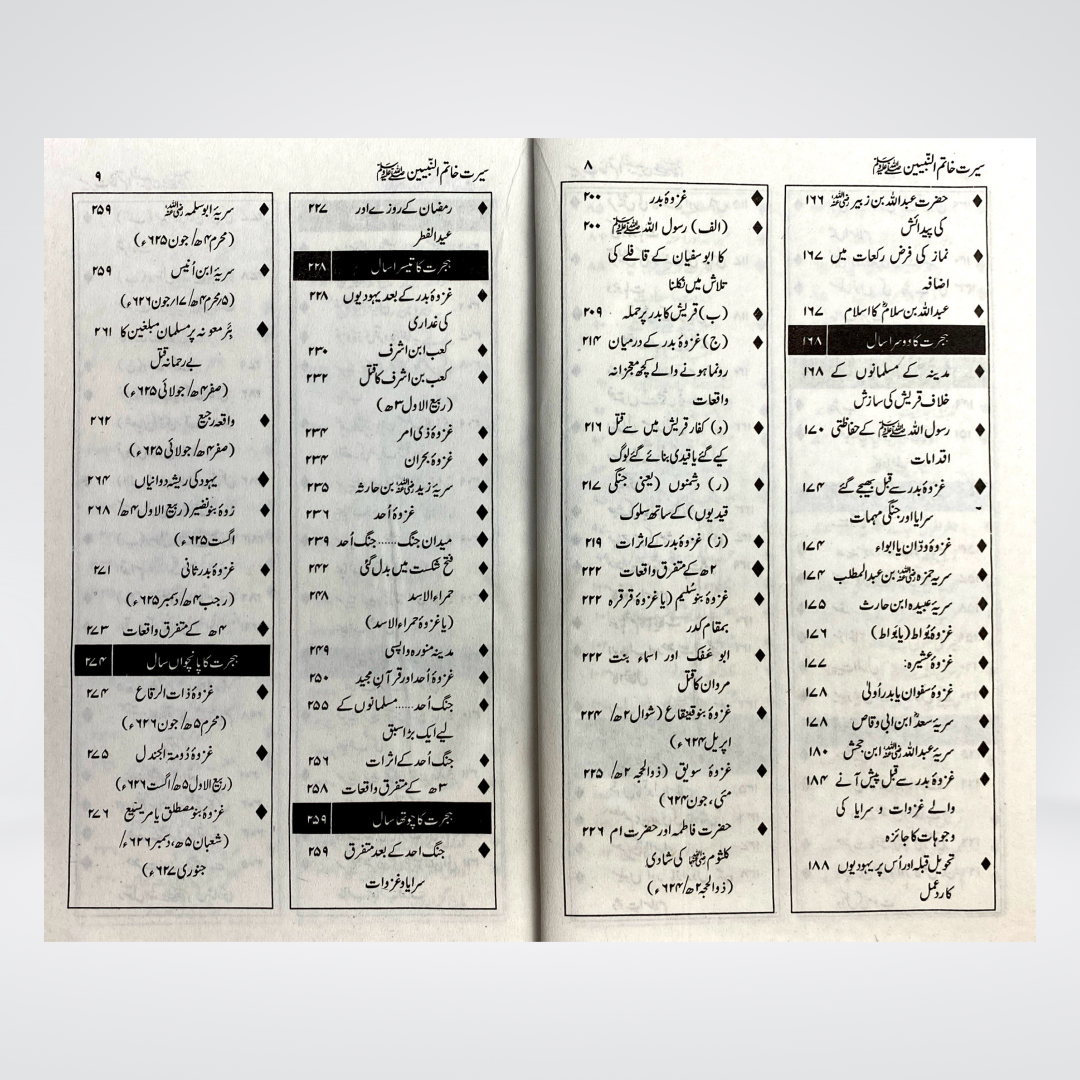 سیرت خاتم النّبیین ﷺ ۸
حضرت عبداللہ بن زبیر رضی اللہ عنہ ۱۶۶
کی پیدائش
نماز کی فرض رکعات میں ۱۶۷
اضافہ
عبداللہ بن سلامؓ کا اسلام ۱۶۷
ہجرت کا دوسرا سال ۱۶۸
مدینہ کے مسلمانوں کے ۱۶۸
خلاف قریش کی سازش
رسول اللہ ﷺ کے حفاظتی ۱۷۰
اقدامات
غزوۂ بدر سے قبل بھیجے گئے ۱۷۴
سرایا اور جنگی مہمات
غزوۂ ودّان یا ابواء ۱۷۴
سریہ حمزہ رضی اللہ عنہ بن عبدالمطلب ۱۷۴
سریۂ عبیدہ ابن حارث ۱۷۵
غزوۂ بُواط (یا بَواط) ۱۷۶
غزوۂ عشیرہ: ۱۷۷
غزوۂ سفوان یا بدر اُولیٰ ۱۷۸
سریۂ سعدؓ ابن ابی وقاص ۱۷۸
سریۂ عبداللہ رضی اللہ عنہ ابن جحش ۱۸۰
غزوۂ بدر سے قبل پیش آنے ۱۸۴
والے غزوات و سرایا کی
وجوہات کا جائزہ
تحویل قبلہ اور اُس پر یہودیوں ۱۸۸
کا ردعمل
غزوۂ بدر ۲۰۰
(الف) رسول اللہ ﷺ ۲۰۰
کا ابوسفیان کے قافلے کی
تلاش میں نکلنا
(ب) قریش کا بدر پر حملہ ۲۰۹
(ج) غزوۂ بدر کے درمیان ۲۱۴
رونما ہونے والے کچھ معجزانہ
واقعات
(د) کفار قریش میں سے قتل ۲۱۶
کیے گئے یا قیدی بنائے گئے لوگ
(ر) دشمنوں (یعنی جنگی ۲۱۷
قیدیوں) کے ساتھ سلوک
(ز) غزوۂ بدر کے اثرات ۲۱۹
۲ھ کے متفرق واقعات ۲۲۲
غزوۂ بنو سُلیم (یا غزوۂ قرقرہ ۲۲۲
بمقام کدر
ابو عَفَک اور اسماء بنت ۲۲۲
مروان کا قتل
غزوۂ بنو قینقاع (شوال ۲ھ/ ۲۲۴
اپریل ۶۲۴ء)
غزوۂ سویق (ذوالحجہ ۲ھ/ ۲۲۵
مئی، جون ۶۲۴)
حضرت فاطمہ اور حضرت ام ۲۲۶
کلثوم رضی اللہ عنہا کی شادی
(ذوالحجہ ۲ھ/۶۲۴ء)
سیرت خاتم النّبیین ﷺ ۹
رمضان کے روزے اور ۲۲۷
عیدالفطر
ہجرت کا تیسرا سال ۲۲۸
غزوۂ بدر کے بعد یہودیوں ۲۲۸
کی غداری
کعب ابن اشرف ۲۳۰
کعب بن اشرف کا قتل ۲۳۲
(ربیع الاول ۳ھ)
غزوۂ ذی امر ۲۳۴
غزوۂ بحران ۲۳۴
سریۂ زید رضی اللہ عنہ بن حارثہ ۲۳۵
غزوۂ اُحد ۲۳۶
میدان جنگ...... جنگ اُحد ۲۳۹
فتح شکست میں بدل گئی ۲۴۲
حمراء الاسد ۲۴۸
(یا غزوۂ حمراء الاسد)
مدینہ منورہ واپسی ۲۴۹
غزوۂ اُحد اور قرآنِ مجید ۲۵۰
جنگ اُحد...... مسلمانوں کے ۲۵۵
لیے ایک بڑا سبق
جنگ اُحد کے اثرات ۲۵۶
۳ھ کے متفرق واقعات ۲۵۸
ہجرت کا چوتھا سال ۲۵۹
جنگ احد کے بعد متفرق ۲۵۹
سرایا و غزوات
سریۂ ابوسلمہ رضی اللہ عنہ ۲۵۹
(محرم ۴ھ/ جون ۶۲۵ء)
سریۂ ابن اُنیس ۲۵۹
(۵/محرم ۴ھ/ ۱۷/جون ۶۲۶ء)
بئرِ معونہ پر مسلمان مبلغین کا ۲۶۱
بے رحمانہ قتل
(صفر ۴ھ/ جولائی ۶۲۵ء)
واقعہ رجیع ۲۶۲
(صفر ۴ھ/ جولائی ۶۲۵ء)
یہود کی ریشہ دوانیاں ۲۶۴
زوۂ بنو نضیر (ربیع الاول ۴ھ/ ۲۶۸
اگست ۶۲۵ء)
غزوۂ بدر ثانی ۲۷۱
(رجب ۴ھ/ دسمبر ۶۲۵ء)
۴ھ کے متفرق واقعات ۲۷۳
ہجرت کا پانچواں سال ۲۷۴
غزوۂ ذات الرقاع ۲۷۴
(محرم ۵ھ/ جون ۶۲۶ء)
غزوۂ دُومۃ الجندل ۲۷۵
(ربیع الاول ۵ھ/ اگست ۶۲۶ء)
غزوۂ بنو مصطلق یا مریسیع ۲۷۶
(شعبان ۵ھ، دسمبر ۶۲۶ء/
جنوری ۶۲۷ء)